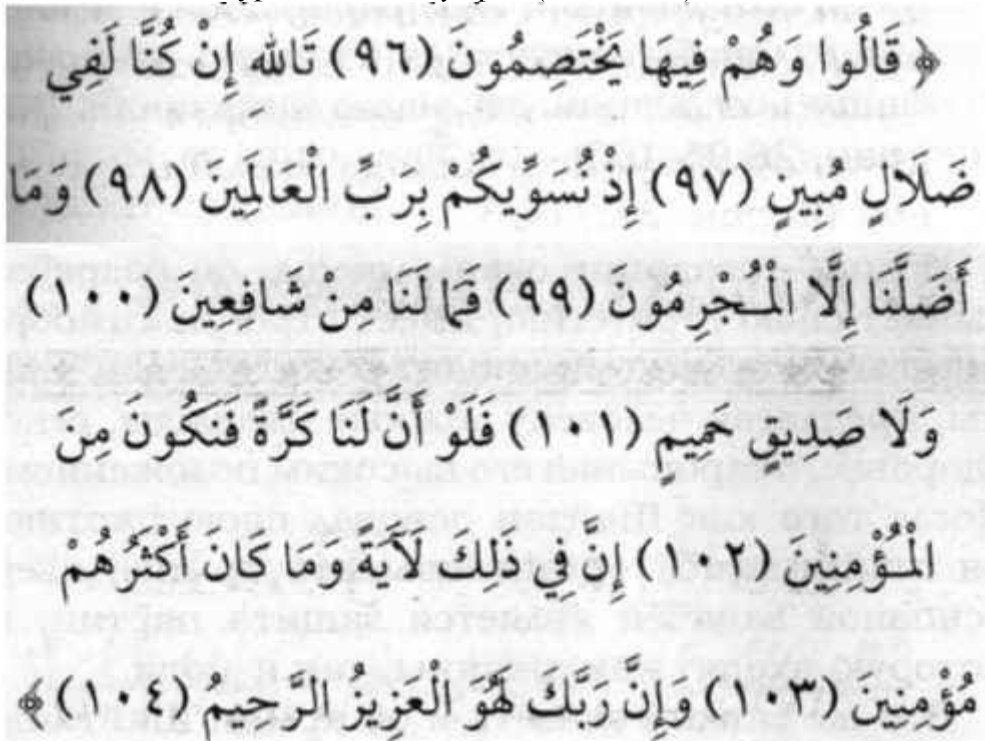 ﴿ قَالُوا وَهُمْ فِيهَا يَخْتَصِمُونَ (٩٦) تَالله إِنْ كُنَّا لَفِي
ضَلَالٍ مُبِينٍ (٩٧) إِذْ نُسَوِّيكُمْ بِرَبِّ الْعَالَمِينَ (٩٨) وَمَا
أَضَلَّنَا إِلَّا الْمُجْرِمُونَ (٩٩) فَمَا لَنَا مِنْ شَافِعِينَ (١٠٠)
وَلَا صَدِيقٍ حَمِيمٍ (١٠١) فَلَوْ أَنَّ لَنَا كَرَّةً فَنَكُونَ مِنَ
الْمُؤْمِنِينَ (١٠٢) إِنَّ فِي ذَلِكَ لَآيَةً وَمَا كَانَ أَكْثَرُهُمْ
مُؤْمِنِينَ (١٠٣) وَإِنَّ رَبَّكَ لَهُوَ الْعَزِيزُ الرَّحِيمُ (١٠٤) ﴾